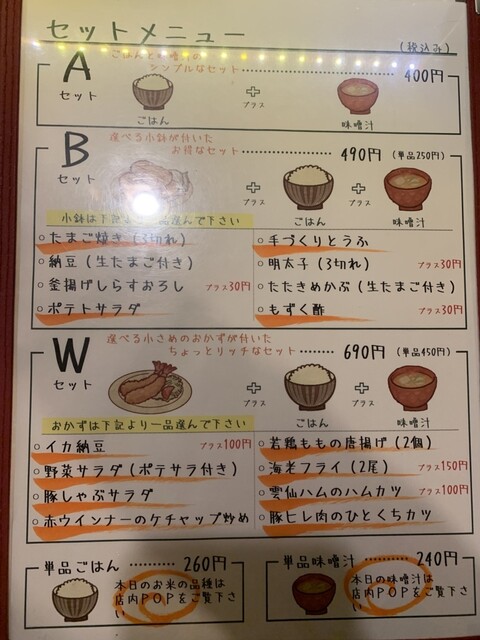 セットメニュー
(税込み)
A
セット
ごはんと味噌汁の
シンプルなセット
400円
ごはん
プラス
味噌汁
B
セット
選べる小鉢が付いた
お得なセット
490円 (単品250円)
プラス
ごはん
プラス
味噌汁
小鉢は下記より一品選んで下さい
○たまご焼き(3切れ)
○納豆(生たまご付き)
○釜揚げしらすおろし プラス30円
○ポテトサラダ
○手づくりとうふ
○明太子(3切れ) プラス30円
○たたきめかぶ(生たまご付き)
○もずく酢 プラス30円
W
セット
選べる小さめのおかずが付いた
ちょっとリッチなセット
690円 (単品450円)
プラス
ごはん
プラス
味噌汁
おかずは下記より一品選んで下さい
○イカ納豆 プラス100円
○野菜サラダ(ポテサラ付き)
○豚しゃぶサラダ
○赤ウインナーのケチャップ炒め
○若鶏ももの唐揚げ(2個)
○海老フライ(2尾) プラス150円
○雲仙ハムのハムカツ プラス100円
○豚ヒレ肉のひとくちカツ
単品ごはん 260円
本日のお米の品種は
店内POPをご覧下さ
い
単品味噌汁 240円
本日の味噌汁は
店内POPをご覧下さ
い